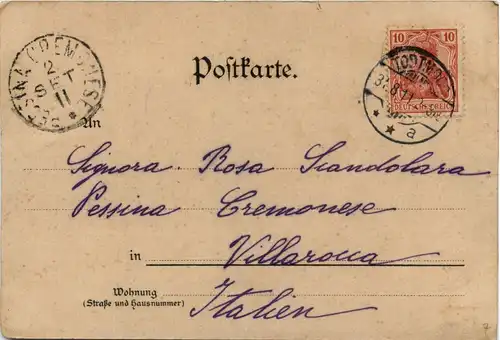 PESSINA CREMONESE
2
SET
11
Postkarte.
10 10
DEUTSCHES REICH
31.8.11
a
An
Signora. Rosa Scandolara
Pessina Cremonese
in Villarocca
Wohnung
(Straße und Hausnummer)
Italien